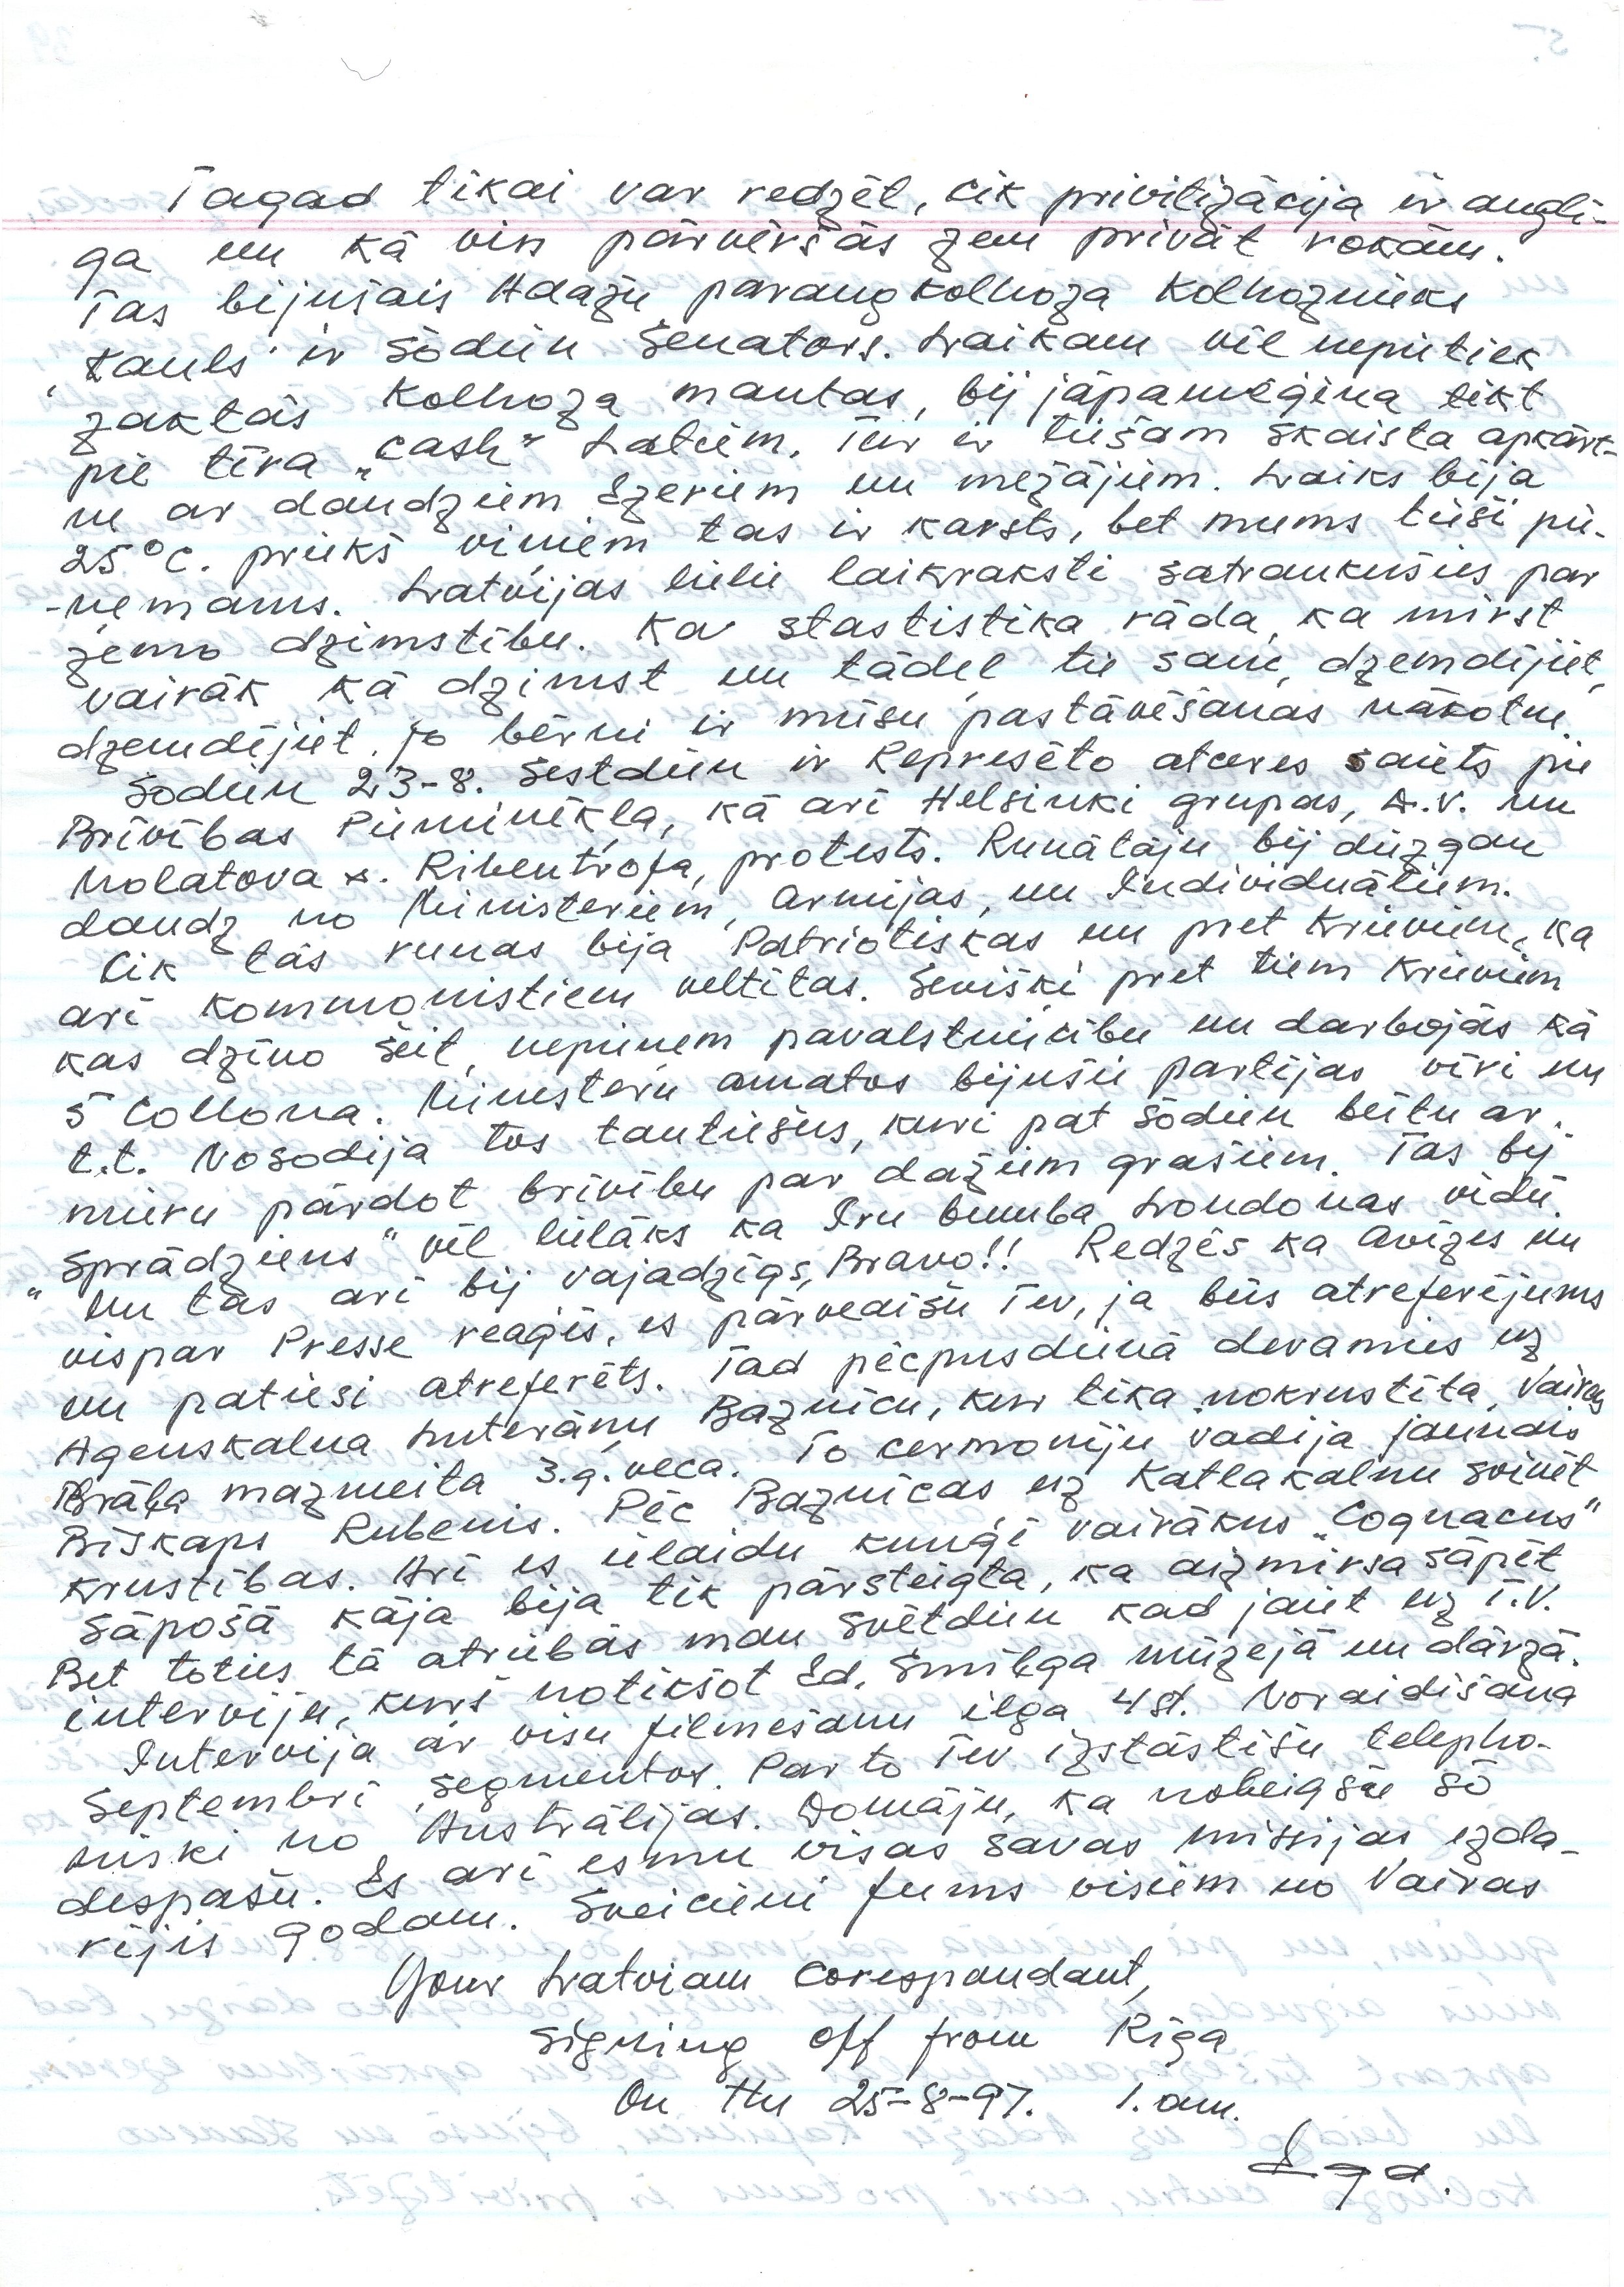 Tagad tikai var redzēt, cik privitizācija ir auglī-
ga un kā viss pārvēršās zem privāt rokām.
Tas bijušais Adažu paraugkolhoza Kolhoznieks
"Kauls" ir šodien Senators. Laikam vēl nepietiek
zaktās Kolhoza mantas, bij jāpamēģina tikt
pie tīra „cash" Latiem. Tur ir tiešam skaista apkārt-
ne ar daudziem Ezeriem un mežājiem. Laiks bija
25°C. priekš viņiem tas ir karsts, bet mums tieši pie-
-ņemams. Latvijas lielie laikraksti satraukušies par
zemo dzimstību. Ka stastistika rāda, ka mirst
vairāk kā dzimst un tādēļ tie sauc, dzemdējiet,
dzemdējiet. Jo bērni ir mūsu pastāvēšanas nākotne.
Šodien 23-8. Sestdien ir Represēto atceres saiets pie
Brīvības Pieminēkļa, kā arī Helsinki grupas, A.V. un
Molatova x. Ribentropa, protests. Runātāju bij diezgan
daudz no Ministeriem, Armijas, un Individuāliem.
Cik tās runas bija Patriotiskas un pret Krieviem, ka
arī kommonistiem veltītas. Sevišķi pret tiem Krieviem
kas dzīvo šeit, nepieņem pavalstniecību un darbojās kā
5 Collona. Ministeru amatos bijušie partijas vīri un
t.t. Nosodija tos tautiešus, kuri pat šodien būtu ar
mieru pārdot brīvību par dažiem grašiem. Tas bij
"Sprādziens" vēl lielāks ka Iru bumba Londonas vidū.
Un tas arī bij vajadzīgs, Bravo!! Redzēs ka Avīzes un
vispar Presse reaģēs, es pārvedīšu Tev, ja būs atreferējums
un patiesi atreferēts. Tad pēcpusdienā devamies uz
Agenskalna Luterāņu Baznīcu, kur tika nokrustīta Vairas
Brāļa mazmeita 3.g. veca. To cermoniju vadija jaunais
Bīskaps Rubenis. Pēc Baznīcas uz Katlakalnu svinēt
krustības. Arī es ielaidu kuņģī vairākus „Cognacus"
Sāpošā kāja bija tik pārsteigta, ka aizmirsa sāpēt
Bet toties tā atriebās man Svētdien kad jaiet uz T.V.
interviju, kurš notiksot Ed. Smiļga mūzejā un dārzā.
Intervija ar visu filmešanu ilga 4 st. Noraidišana
Septembrī segmentos. Par to Tev izstāstīšu telepho-
niski no Austrālijas. Domāju, ka nobeigšu šo
dispašu. Es arī esmu visas savas missijas izda-
rījis godam. Sveicieni Jums visiem no Vairas
Your Latviam Corespandant,
signing off from Riga
On the 25-8-97. 1. am.